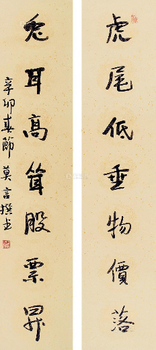 虎尾低垂物價落
兔耳高聳股票昇
辛卯春節 莫言撰並